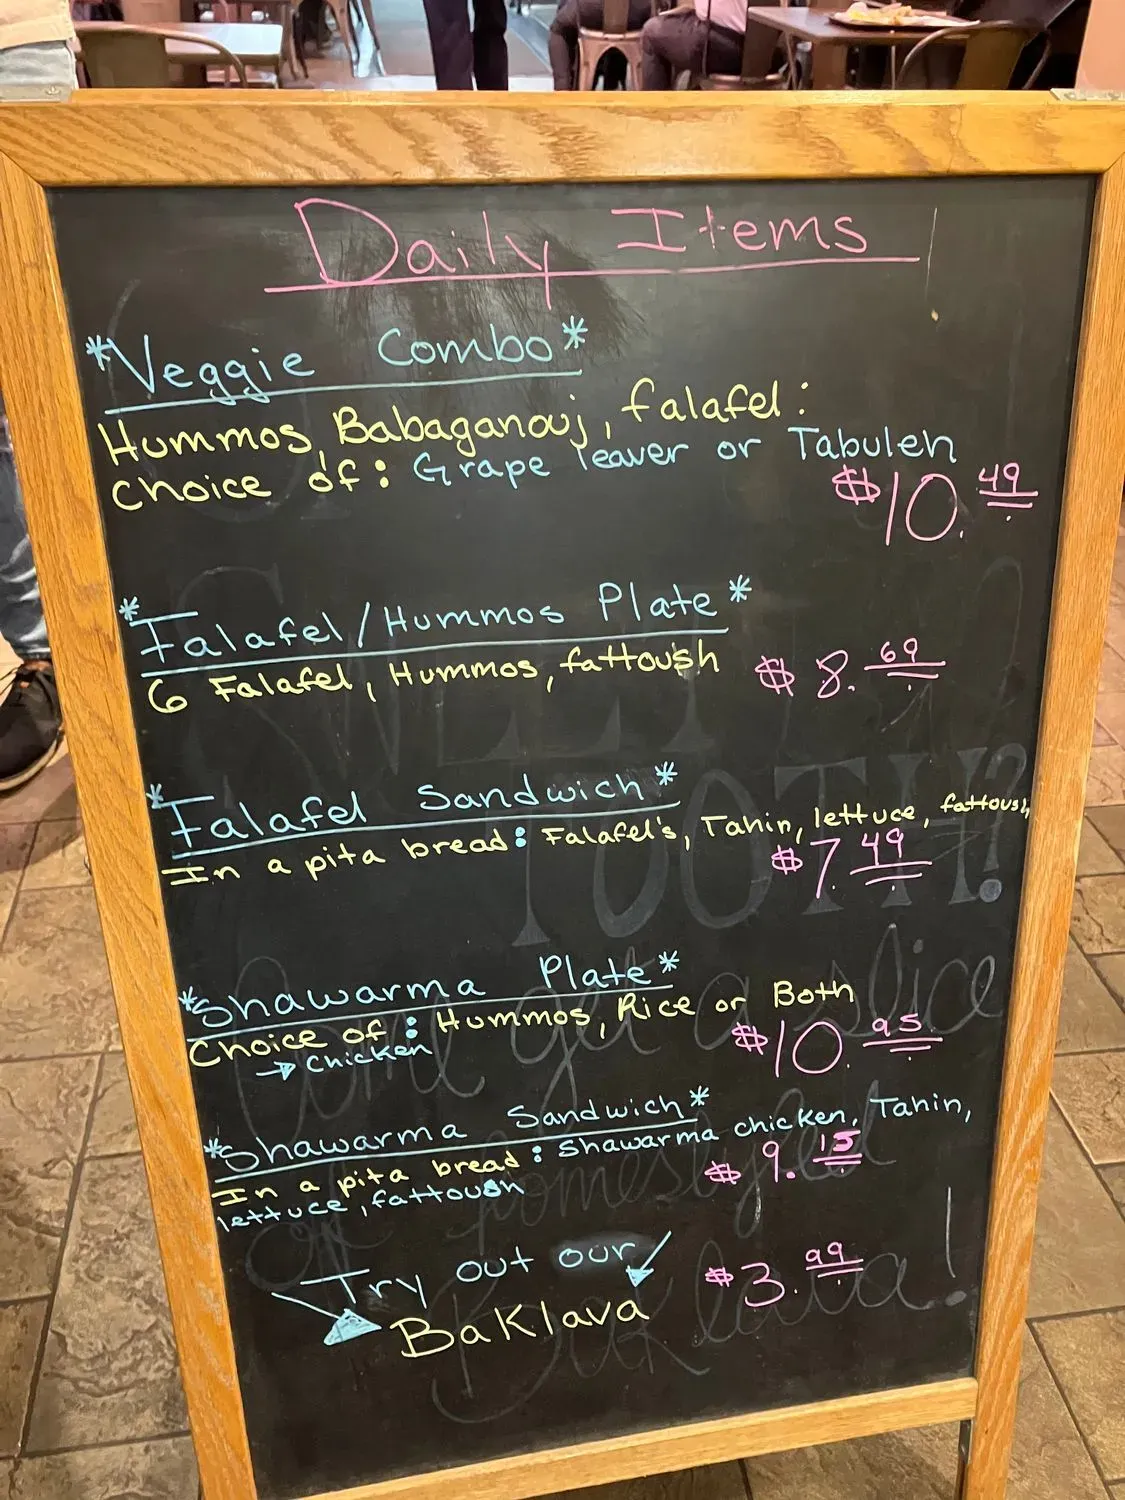 Daily Items
*Veggie Combo*
Hummos, Babaganouj, falafel:
Choice of: Grape leaver or Tabuleh
$10.49
*Falafel/Hummos Plate*
6 Falafel, Hummos, fattoush $8.69
*Falafel Sandwich*
In a pita bread: Falafel's, Tahin, lettuce, fattoush,
$7.49
*Shawarma Plate*
Choice of: Hummos, Rice or Both
→ Chicken $10.95
*Shawarma Sandwich*
In a pita bread: Shawarma chicken, Tahin,
lettuce, fattoush $9.15
Try out our
Baklava $3.99
SWEET
TOOTH?
Come get a slice
of homestyled
Baklava!